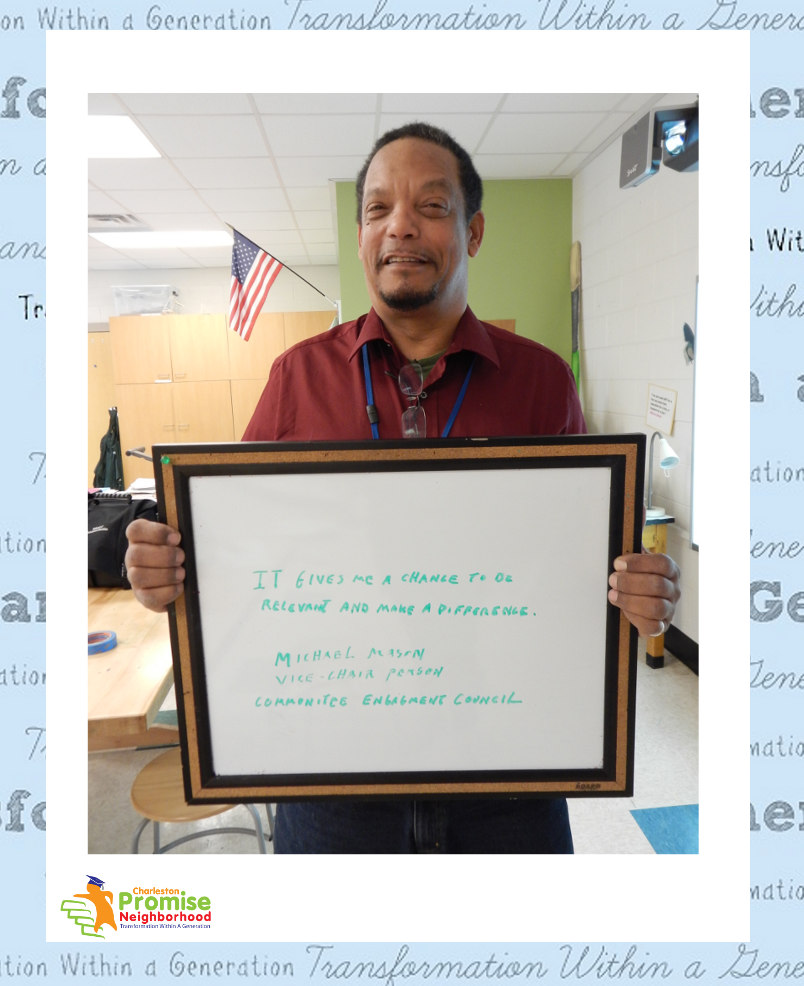 on Within a Generation Transformation Within a Genera
IT GIVES ME A CHANCE TO BE
RELEVANT AND MAKE A DIFFERENCE.
MICHAEL MASON
VICE-CHAIR PERSON
COMMUNITEE ENGAGMENT COUNCIL
Charleston
Promise
Neighborhood
Transformation Within A Generation
tion Within a Generation Transformation Within a Gene